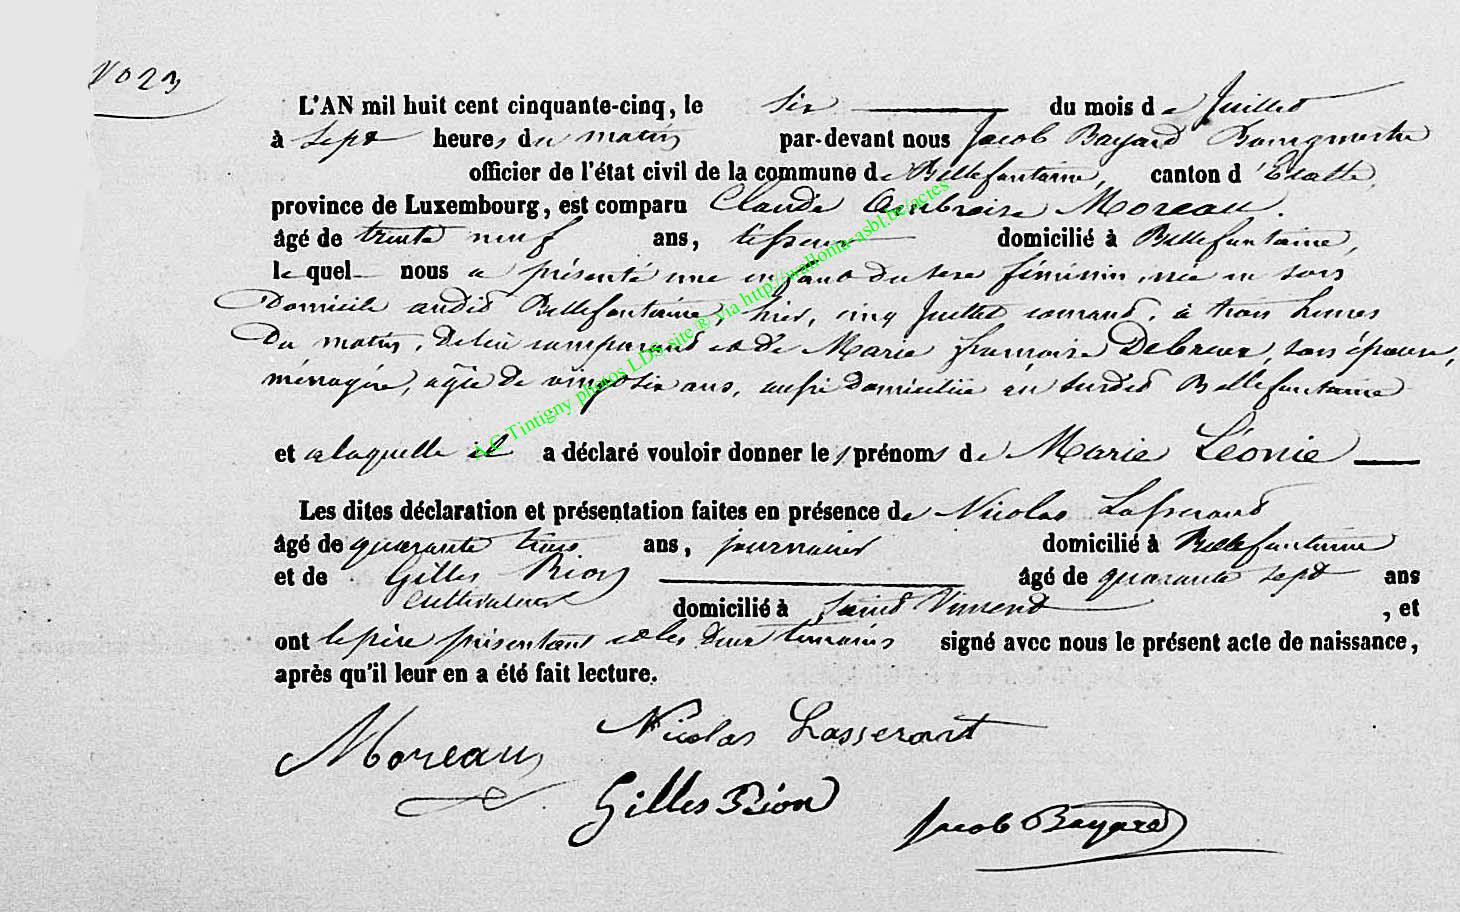 N° 23
L'AN mil huit cent cinquante-cinq, le six du mois de Juillet
à sept heures du matin par-devant nous Jacob Bayard Bourgmestre
officier de l'état civil de la commune de Bellefontaine, canton d'Etalle,
province de Luxembourg, est comparu Claude Ambroise Moreau.
âgé de trente neuf ans, tisseur domicilié à Bellefontaine,
lequel nous a présenté une enfant du sexe féminin, née en son
Domicile audit Bellefontaine, hier, cinq Juillet courant, à trois heures
Du matin, de lui comparant et de Marie françoise son épouse,
ménagère, agée de vingt six ans, aussi domiciliée au susdit Bellefontaine
et a laquelle il a déclaré vouloir donner les prénoms de Marie Léonie
Les dites déclaration et présentation faites en présence de Nicolas Lasserant
âgé de quarante trois ans, journalier domicilié à Bellefontaine
et de Gilles Rion âgé de quarante sept ans
cultivateur domicilié à Saint Vincent, et
ont le père présentant et les deux témoins signé avec nous le présent acte de naissance,
après qu'il leur en a été fait lecture.
Moreau Nicolas Lasserant
Gilles Rion Jacob Bayard
LG Tintigny photos LDS site ® via http://wallonia-asbl.be/actes